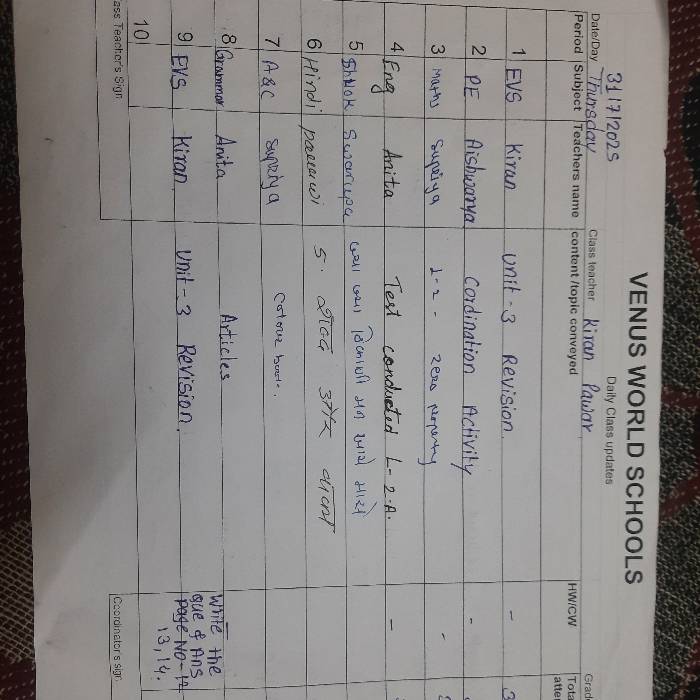 VENUS WORLD SCHOOLS
Daily Class updates
31/7/2025
Date/Day Thursday Class teacher Kiran Pawar Grad
Period Subject Teachers name content /topic conveyed HW/CW Tota
atte
1 EVS Kiran Unit - 3 Revision. - 3
2 PE Aishwarya Cordination Activity -
3 Maths Supriya 2-2 - zero property -
4 Eng Anita Test conducted L-2.A. -
5 Shlok
6 Hindi 5. शब्द और वाक्य
7 A&C Supriya Colour
8 Grammar Anita Articles
9 EVS Kiran Unit - 3 Revision. Write the
que & Ans
page No-12
13,14.
10
ass Teacher's Sign Coordinator's sign